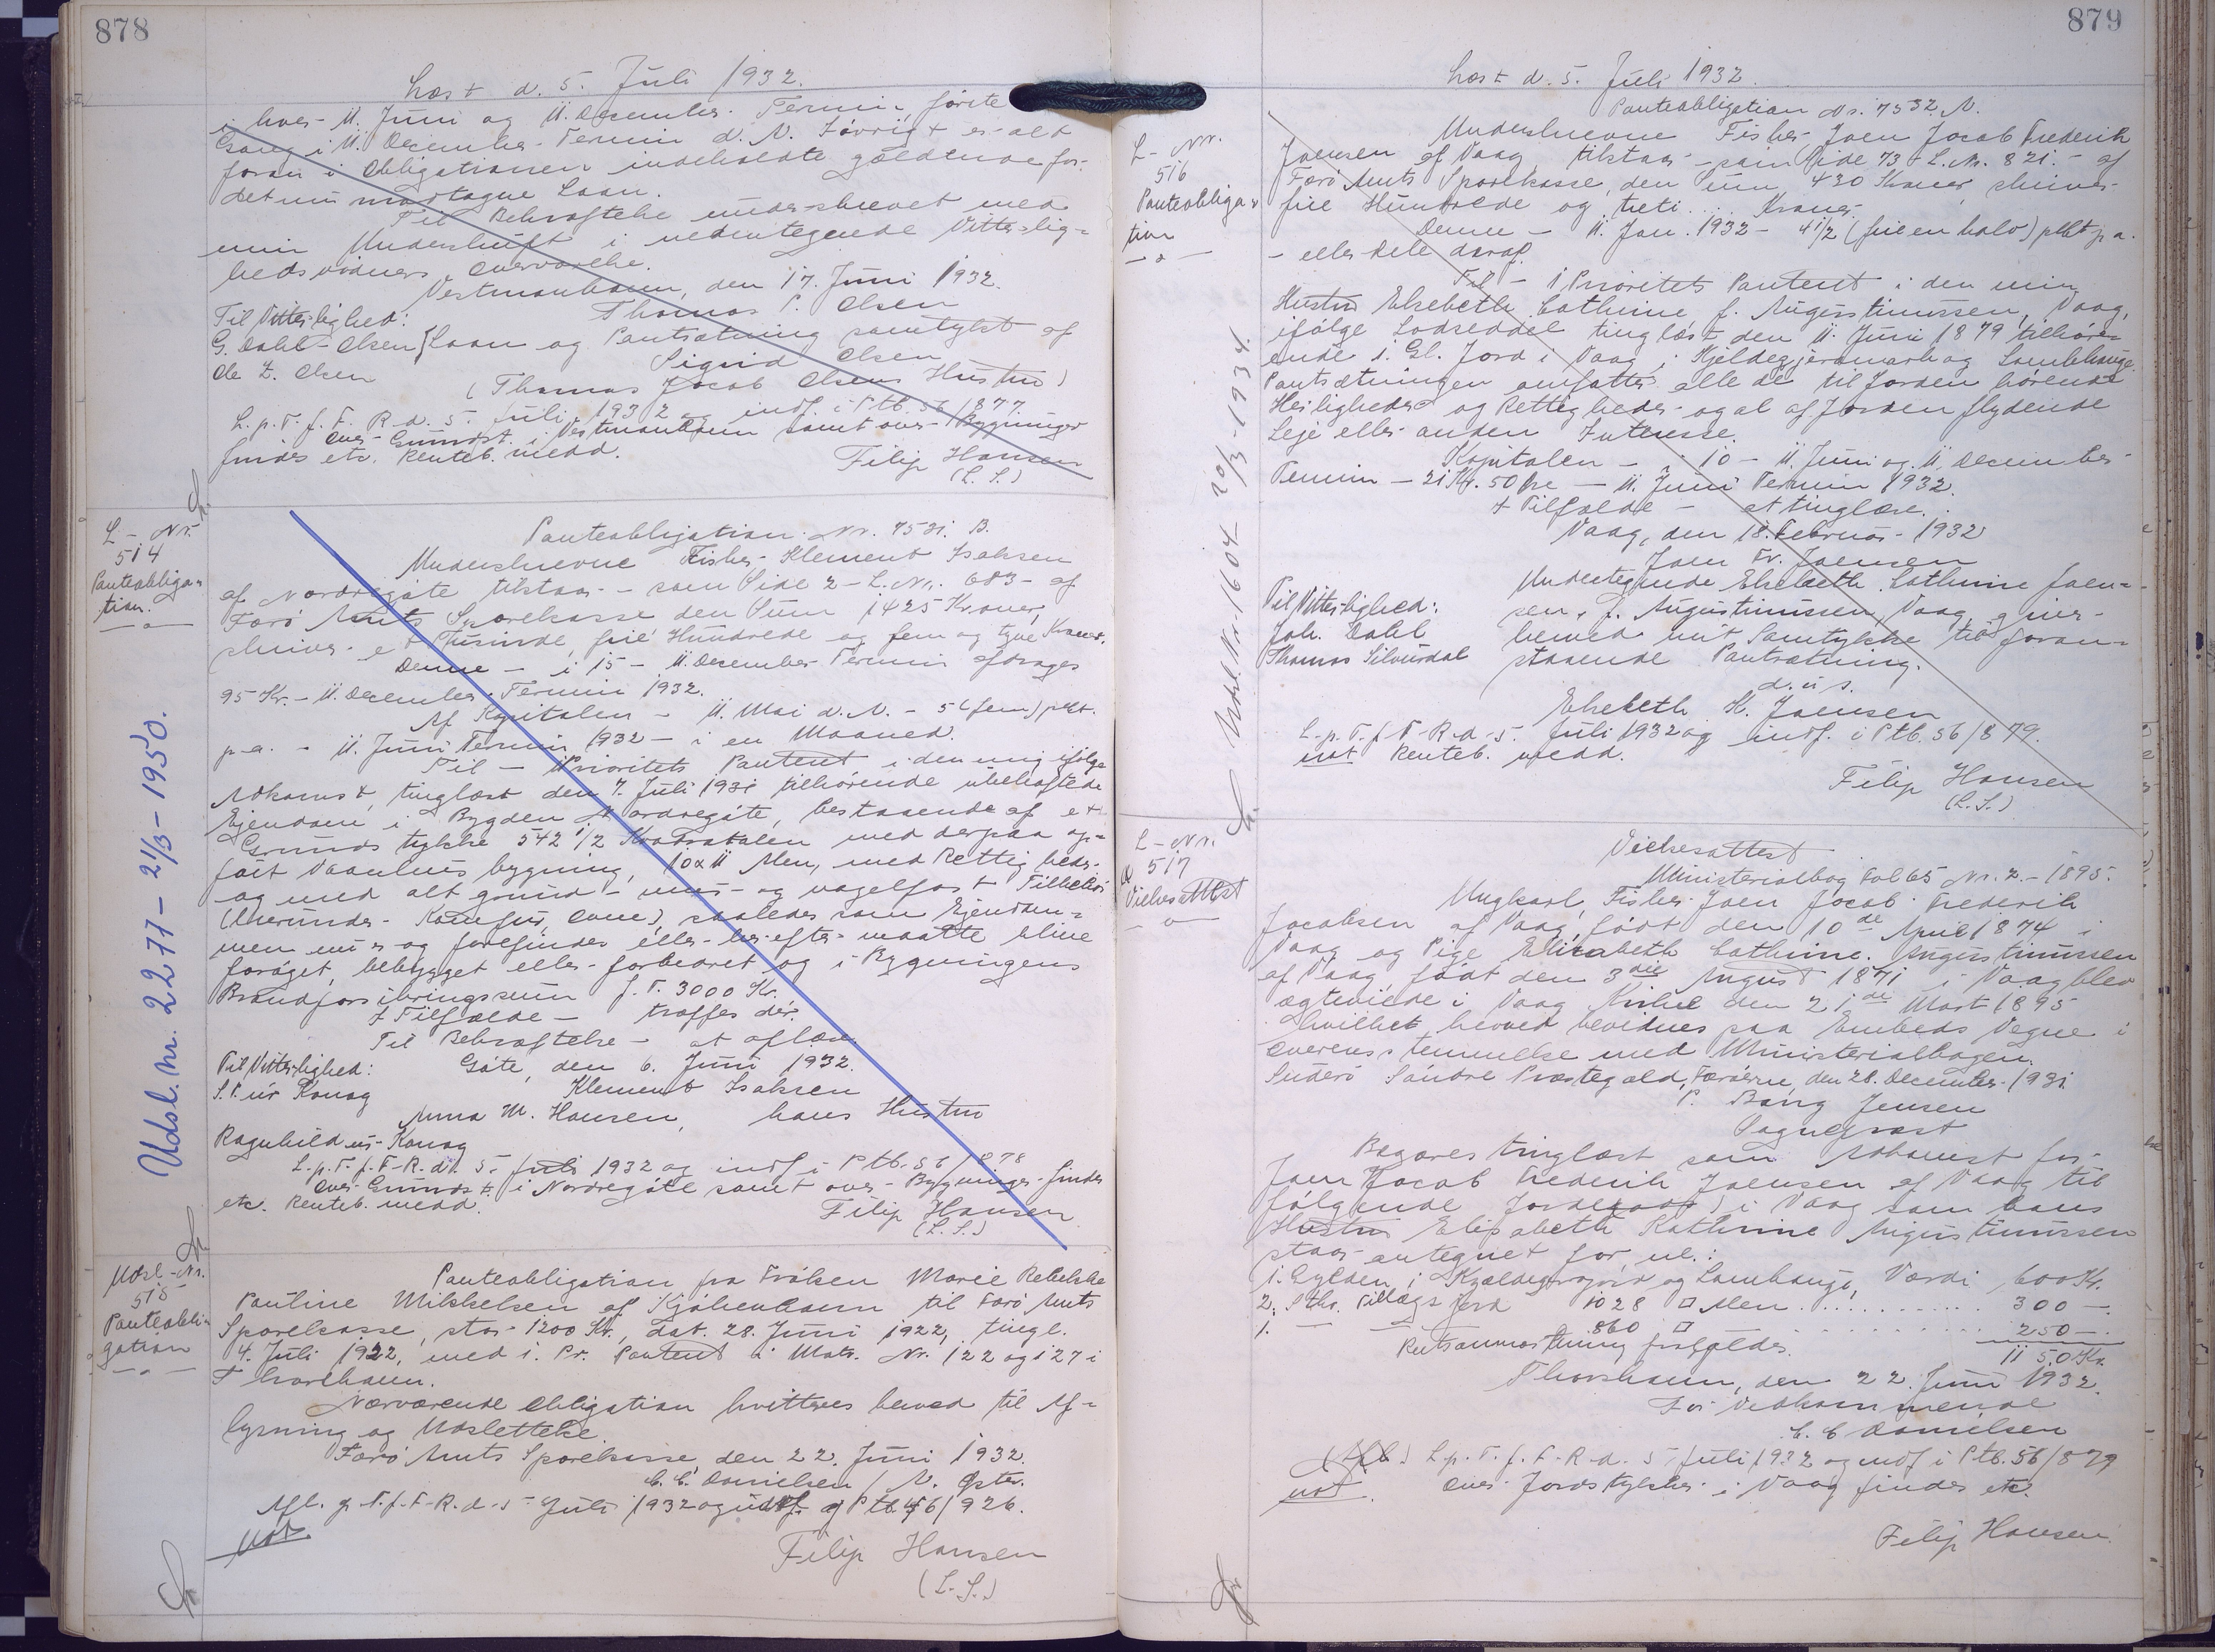 878
Læst d. 5. Juli 1932.
i hver 11. Juni og 11. December Termin første
Gang i 11. December Termin d. A. Iøvrigt er alt
foran i Obligationen indeholdte gældende for
det nu modtagne Laan.
Til Bekræftelse underskrevet med
min Underskrift i nedentegnede Vitterlig=
hedsvidners Overværelse.
Vestmanhavn, den 17. Juni 1932.
Til Vitterlighed: Thomas P. Olsen
G. Dahl-Olsen Laan og Pantsætning samtykt af
Ole Z. Olsen Sigrid Olsen
(Thomas Jacob Olsens Hustru)
L. p. T. f. F. R. d. 5. Juli 1932 og indf. i Ptb. 56/877
Over Grundst. i Vestmanhavn samt over Bygninger
findes etc. Renteb. medd.
Filip Hansen
(L. S.)
L - Nr.
514
Panteobliga=
tion.
Udsl. nr. 2277 - 21/3 - 1950.
Panteobligation Nr. 7531. B.
Underskrevne Fisker Klement Isaksen
af Nordregøte tilstaar - som Side 2 - L. Nr. 683 - af
Færø Amts Sparekasse den Sum 1425 Kroner,
skriver et Tusinde, fire Hundrede og fem og tyve Kroner.
Denne - i 15 - 11. December Termin afdrages
95 Kr. - 11. December Termin 1932.
Af Kapitalen - 11. Mai d. A. - 5 (fem) pCt.
p. a. - 11. Juni Termin 1932 - i en Maaned.
Til - 1 Prioritets Panteret i den mig ifølge
Adkomst, tinglæst den 7. Juli 1931 tilhørende ubehæftede
Ejendom i Bygden Nordregøte, bestaaende af et
Grundstykke 542 1/2 Kvadratalen med derpaa op=
ført Vaanhusbygning, 10 x 11 Alen, med Rettigheder
og med alt grund- mur- og nagelfast Tilbehør
(herunder Komfur, Ovne), saaledes som Ejendom=
men nu er og forefindes eller herefter maatte blive
forøget, bebygget eller forbedret og i Bygningens
Brandforsikringssum f. T. 3000 Kr.
I Tilfælde - træffes dér.
Til Bekræftelse - at aflæse.
Til Vitterlighed: Gøte, den 6. Juni 1932.
S. P. úr Konog Klement Isaksen
Anna M. Hansen, hans Hustru
Ragnhild úr Konog
L. p. T. f. F. R. d. 5. Juli 1932 og indf. i Ptb. 56/878
Over Grundst. i Nordregøte samt over Bygninger findes
etc. Renteb. medd.
Filip Hansen
(L. S.)
Udsl - Nr.
515
Panteobli=
gation
Panteobligation fra Frøken Marie Rebekka
Pauline Mikkelsen af Kjøbenhavn til Færø Amts
Sparekasse, stor 1200 Kr., dat. 28. Juni 1922, tingl.
4. Juli 1922, med 1. Pr. Panteret i Matr. Nr. 122 og 127 i
Thorshavn.
Nærværende Obligation kvitteres herved til Af=
lysning og Udslettelse.
Færø Amts Sparekasse, den 22. Juni 1932.
C. C. Danielsen / N. Øster.
Afl. p. T. f. F. R. d. 5 Juli 1932 og udsl. af Ptb. 46/926.
Filip Hansen
(L. S.)
879
Læst d. 5. Juli 1932.
L - Nr.
516
Panteobliga=
tion
Udsl. Nr. 1604 20/3 - 1934.
Panteobligation Nr. 7532. A.
Underskrevne Fisker Joen Jacob Frederik
Joensen af Vaag tilstaar - som Side 73 - L. Nr. 821. - af
Færø Amts Sparekasse, den Sum 430 Kroner, skriver
fire Hundrede og treti . . . Kroner.
Denne - 11. Jan. 1932 - 4 1/2 (fire en halv) pCt p. a.
- eller Dele deraf.
Til - 1 Prioritets Panteret i den min
Hustru Elsebeth Cathrine f. Augustinussen, Vaag,
ifølge Lodseddel tinglæst den 11. Juni 1879 tilhøre=
ende 1. Gl. Jord i Vaag, i Kjeldeggjerømark og Lambhauge.
Pantsætningen omfatter alle de til Jorden hørende
Herligheder og Rettigheder og al af Jorden flydende
Leje eller anden Interesse.
Kapitalen - 10 - 11. Juni og 11. December
Termin - 21 Kr. 50 Øre - 11. Juni Termin 1932.
I Tilfælde - at tinglæse.
Vaag, den 18. Februar 1932
Joen Fr. Joensen
Undertegnede Elsebeth Cathrine Joen=
Til Vitterlighed: sen, f. Augustinussen, Vaag, giver
Joh. Dahl herved mit Samtykke til foran=
Thomas Silvurdal staaende Pantsætning.
d. u. s.
Elsebeth K. Joensen
L. p. T. f. F. R. d. 5. Juli 1932 og indf. i Ptb. 56/879.
not Renteb. medd.
Filip Hansen
(L. S.)
L - Nr.
517
Vielsesattest
Vielsesattest
Ministerialbog Fol 65 Nr. 2. - 1895.
Ungkarl, Fisker Joen Jacob Frederik
Jacobsen af Vaag, født den 10de April 1874 i
Vaag og Pige Elisabeth Cathrine Augustinussen
af Vaag, født den 3die August 1871 i Vaag blev
ægteviede i Vaag Kirke den 21de Mart 1895
hvilket herved bevidnes paa Embeds Vegne i
Overensstemmelse med Ministerialbogen.
Suderø Søndre Præstegæld, Færøerne, den 28. December 1931
P. Bang Jensen
Sognepræst
Begæres tinglæst som Adkomst for
Joen Jacob Frederik Joensen af Vaag til
følgende Jordegods i Vaag som hans
Hustru Elisabeth Kathrine Augustinussen
staar antegnet for, nl.:
1. Gylden i Kjældeggerøjord og Lambhauge, Værdi 600 Kr.
2. Stk. Tillægsjord 1028 □ Alen . . . . . . . . . . 300 -
1. — — 860 □ . . . . . . . . . . 250 -
1150 Kr.
Retsanmærkning frafaldes.
Thorshavn, den 22. Juni 1932.
For Vedkommende
C. C. Danielsen
L. p. T. f. F. R. d. 5 Juli 1932 og indf i Ptb. 56/879
not Over Jordstykker i Vaag findes etc.
Filip Hansen